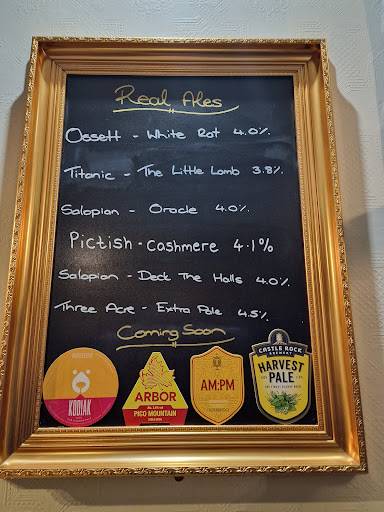 Real Ales
Ossett - White Rat 4.0%
Titanic - The Little Lamb 3.8%
Salopian - Oracle 4.0%
Pictish - Cashmere 4.1%
Salopian - Deck The Halls 4.0%
Three Acre - Extra Pale 4.5%
Coming Soon
KODIAK
ARBOR
PICO MOUNTAIN
AM:PM
CASTLE ROCK
BREWERY
HARVEST
PALE